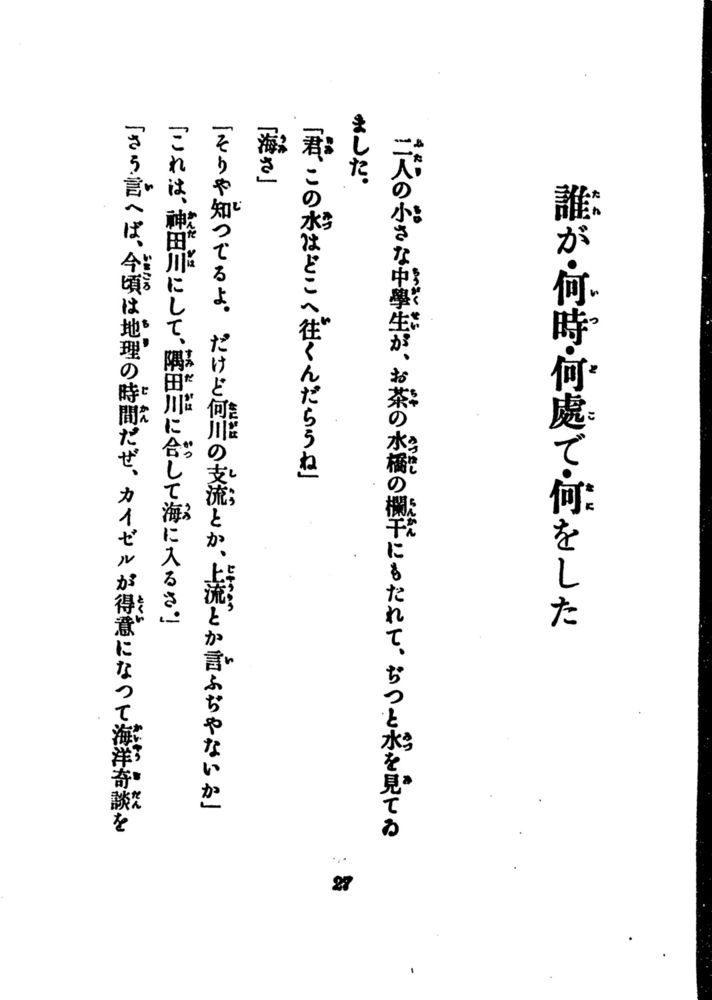 誰が・何時・何處で・何をした
二人の小さな中學生が、お茶の水橋の欄干にもたれて、ぢつと水を見てゐ
ました。
「君、この水はどこへ往くんだらうね」
「海さ」
「そりや知つてるよ。だけど何川の支流とか、上流とか言ふぢやないか」
「これは、神田川にして、隅田川に合して海に入るさ。」
「さう言へば、今頃は地理の時間だぜ、カイゼルが得意になつて海洋奇談を
27